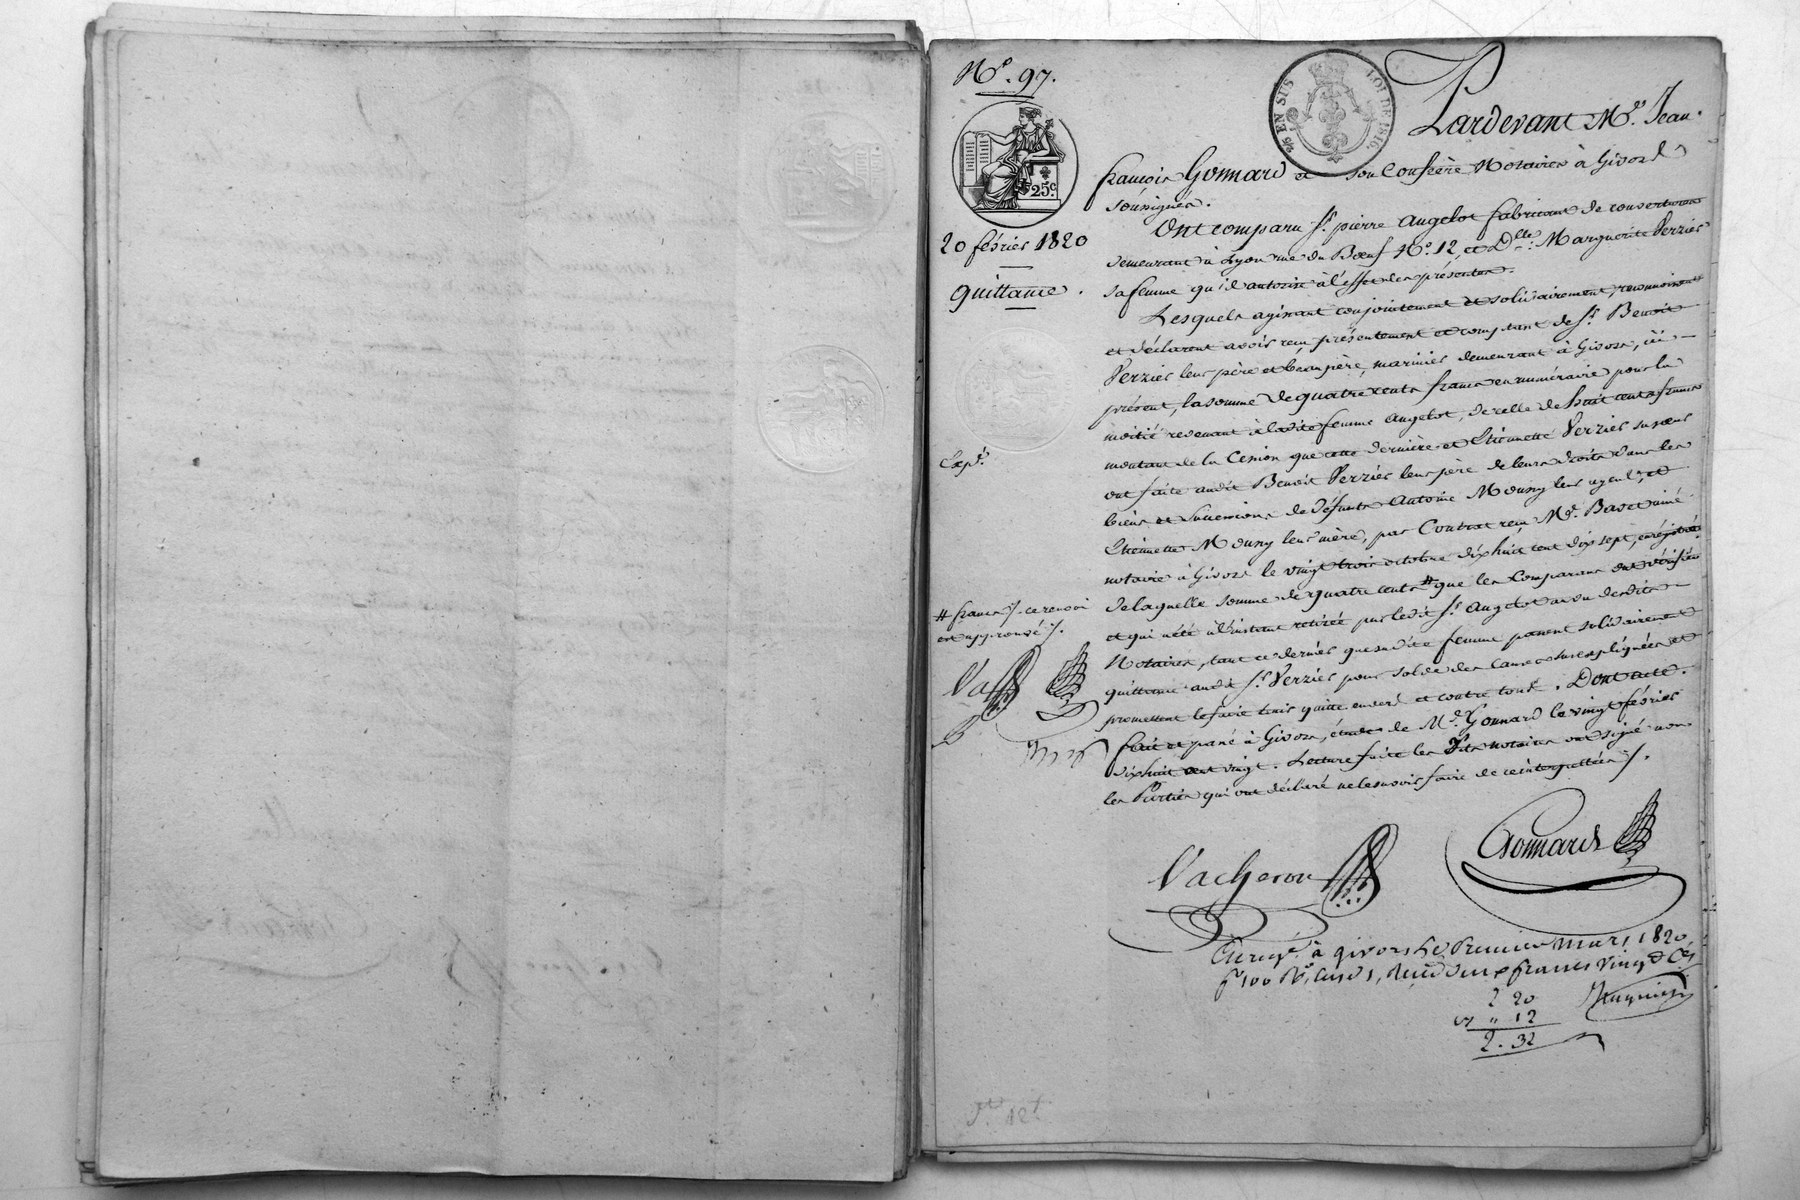 N.º 97.
25.c
20 février 1820
Quittance.
Exp.é
# francs /. ce renvoi
est approuvé /.
Va
2/6 EN SUS
LOI DE 1816.
Pardevant M.e Jean
françois Gonnard et son Confrère Notaires à Givors
soussignés.
Ont comparu S.r pierre Angelot fabricant de couvertures
demeurant à Lyon rue du Boeuf N.o 12, et D.lle Marguerite Verzier
sa femme qu'il autorise à l'effet des présentes.
Lesquels agissant conjointement et solidairement, reconnoissent
et déclarent avoir reçu présentement et comptant de S.r Benoit
Verzier leur père et beaupère, marinier demeurant à Givors, ici
présent, la somme de quatre cents francs en numéraire pour la
moitié revenant à ladite femme Angelot, de celle de huit cents francs
montant de la Cession que cette dernière et Etiennette Verzier sa soeur
ont faite audit Benoit Verzier leur père de leurs droits dans les
biens et successions de défunts Antoine Mouny leur ayeul, et
Etiennette Mouny leur mère, par Contrat reçu M.e Basset ainé
notaire à Givors le vingt trois octobre dix huit cent dix sept, enrégistré
de laquelle somme de quatre cents # que les Comparans ont vérifiée
et qui a été à l'instant retirée par ledit S.r Angelot au vu desdits
Notaires, tant ce dernier que sadite femme passent solidairement
quittance audit S.r Verzier pour solde des causes susexpliquées et
promettent le faire tenir quitte envers et contre tous. Dont acte.
fait et passé à Givors, étude de M.e Gonnard le vingt février
dix huit cent vingt. Lecture faite les dits notaires ont signé non
les Parties qui ont déclaré ne le savoir faire de ce interpellées /.
Vacheron
Gonnard
Enreg.é à Givors le Premier Mars 1820
f.o 100 R.o, Reçu deux francs vingt C.es
2 20
" 12
2. 32